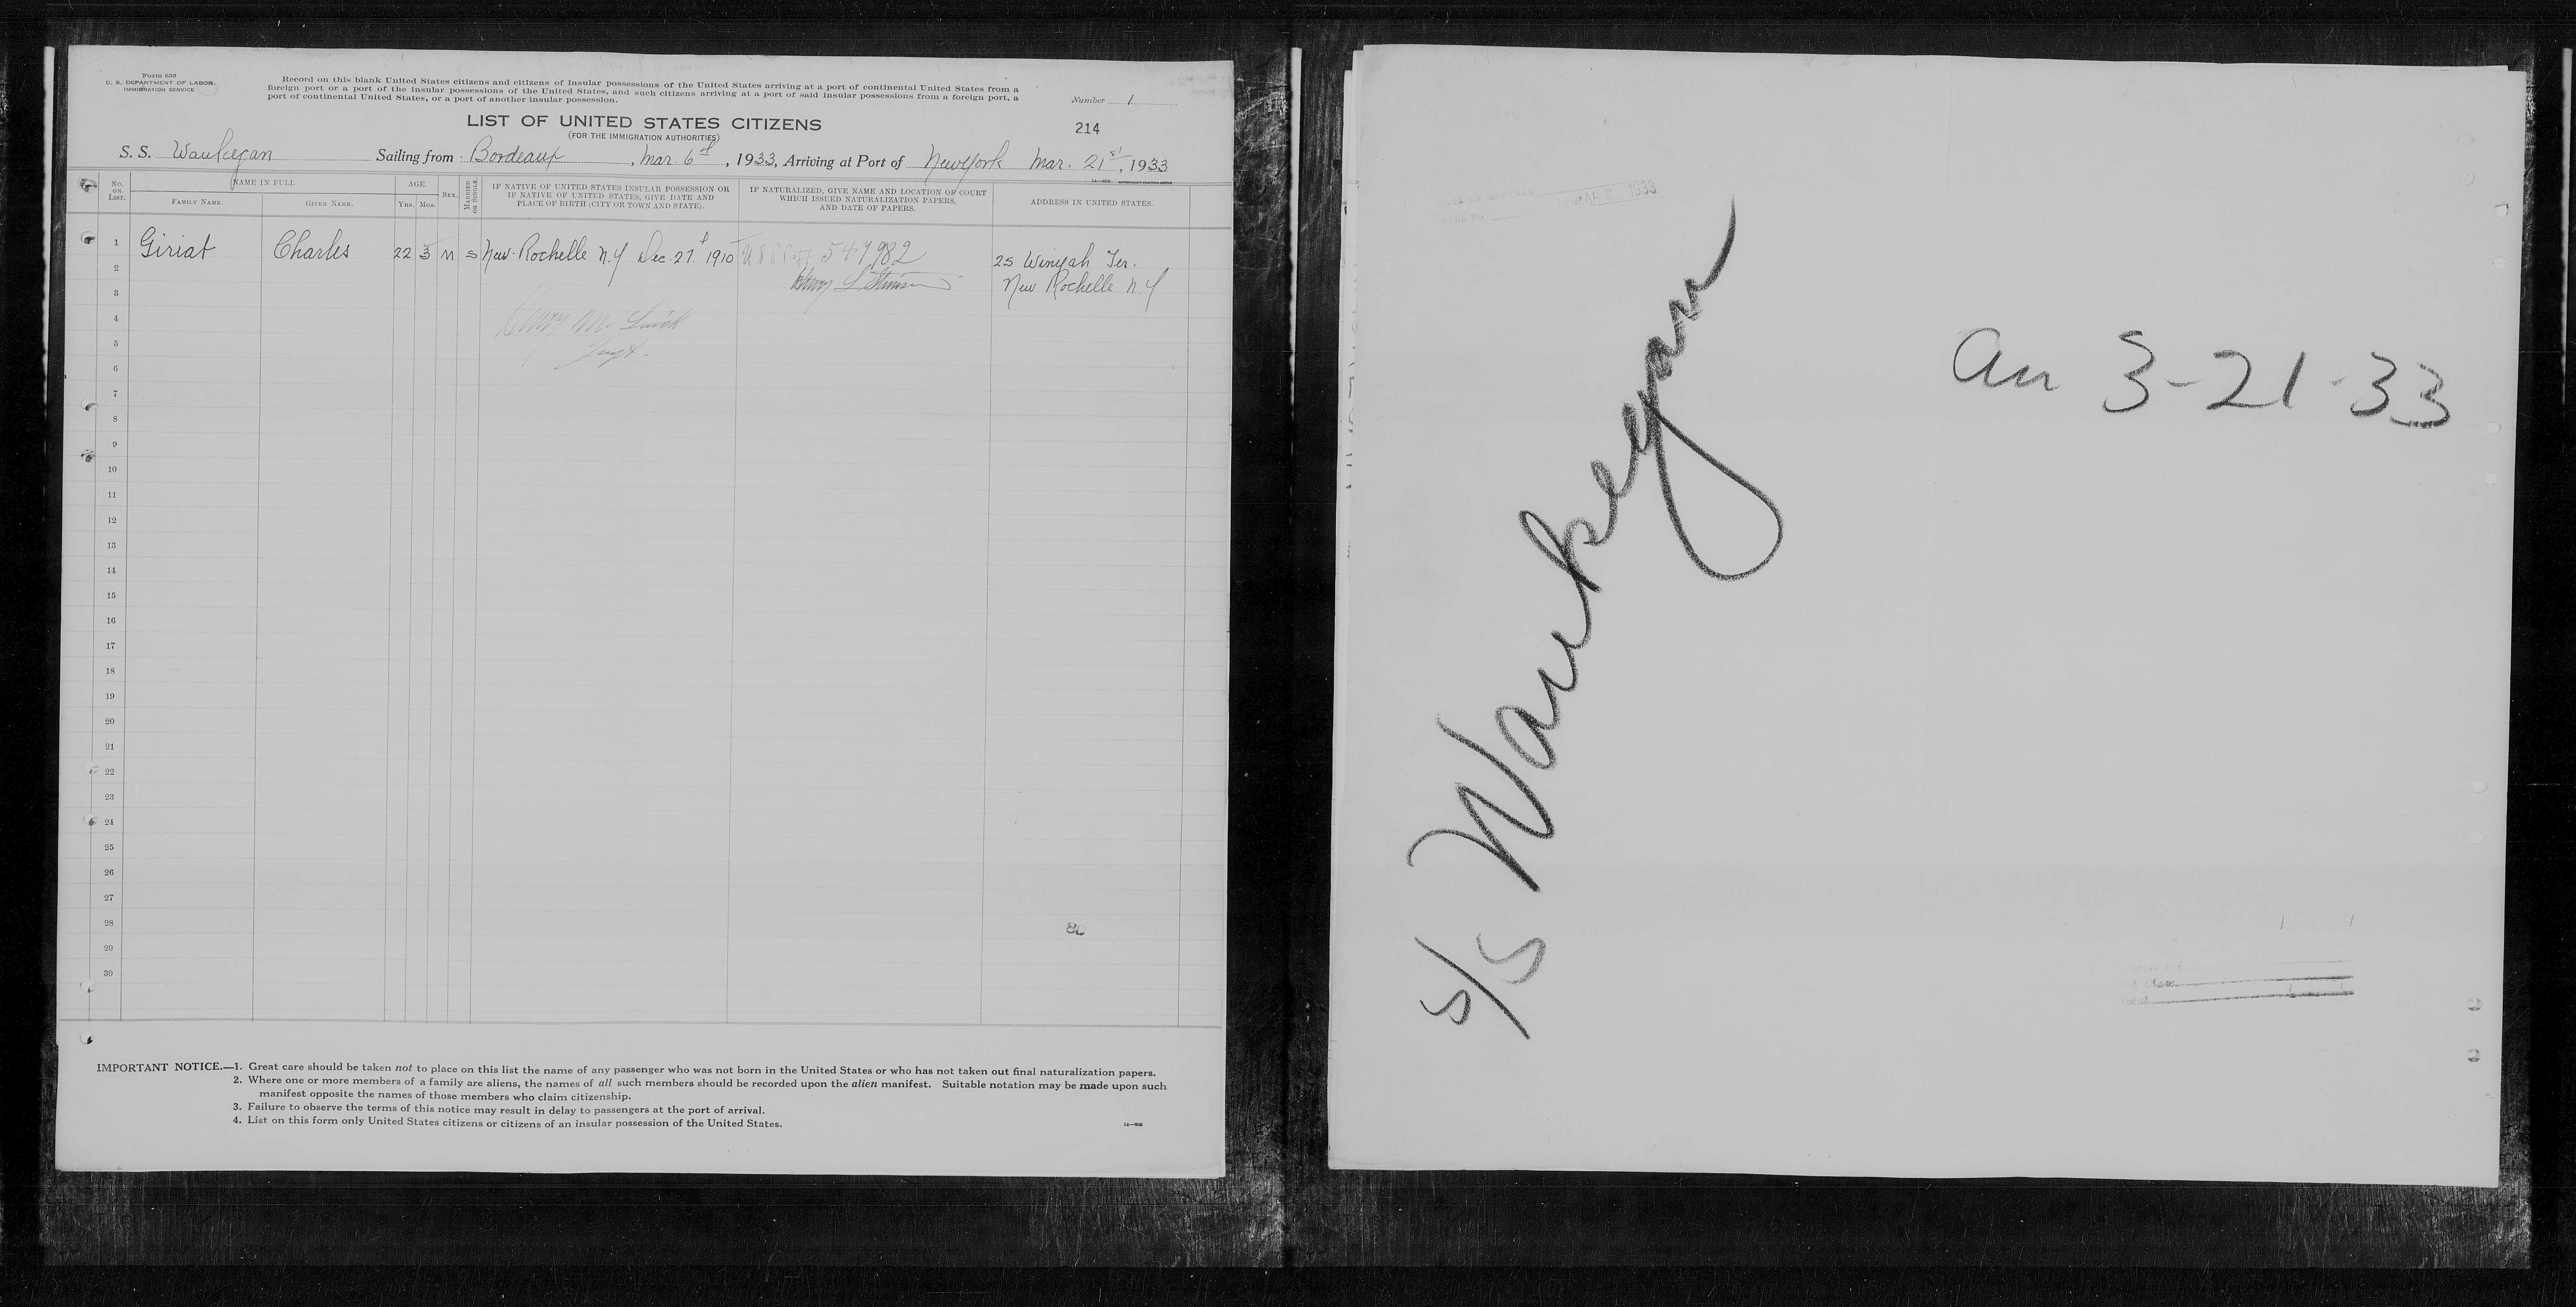 Form 633
U. S. DEPARTMENT OF LABOR
IMMIGRATION SERVICE
Record on this blank United States citizens and citizens of insular possessions of the United States arriving at a port of continental United States from a
foreign port or a port of the insular possessions of the United States, and such citizens arriving at a port of said insular possessions from a foreign port, a
port of continental United States, or a port of another insular possession.
Number 1
LIST OF UNITED STATES CITIZENS
(FOR THE IMMIGRATION AUTHORITIES)
214
S. S. Waukegan Sailing from Bordeaux, Mar. 6th, 1933, Arriving at Port of New York Mar. 21st, 1933
No. ON LIST.
NAME IN FULL
FAMILY NAME.
GIVEN NAME.
AGE.
YRS. MOS.
SEX.
MARRIED OR SINGLE.
IF NATIVE OF UNITED STATES INSULAR POSSESSION OR
IF NATIVE OF UNITED STATES, GIVE DATE AND
PLACE OF BIRTH (CITY OR TOWN AND STATE).
IF NATURALIZED, GIVE NAME AND LOCATION OF COURT
WHICH ISSUED NATURALIZATION PAPERS,
AND DATE OF PAPERS.
ADDRESS IN UNITED STATES.
1 Giriat Charles 22 3 M S New Rochelle N.Y Dec. 27 1910 547982 25 Winyah Ter.
2 Henry L Stimson New Rochelle N.Y
3
4
5
6
7
8
9
10
11
12
13
14
15
16
17
18
19
20
21
22
23
24
25
26
27
28
29
30
IMPORTANT NOTICE.—1. Great care should be taken not to place on this list the name of any passenger who was not born in the United States or who has not taken out final naturalization papers.
2. Where one or more members of a family are aliens, the names of all such members should be recorded upon the alien manifest. Suitable notation may be made upon such
manifest opposite the names of those members who claim citizenship.
3. Failure to observe the terms of this notice may result in delay to passengers at the port of arrival.
4. List on this form only United States citizens or citizens of an insular possession of the United States.
1933
S/S Waukegan
arr 3-21-33
Total